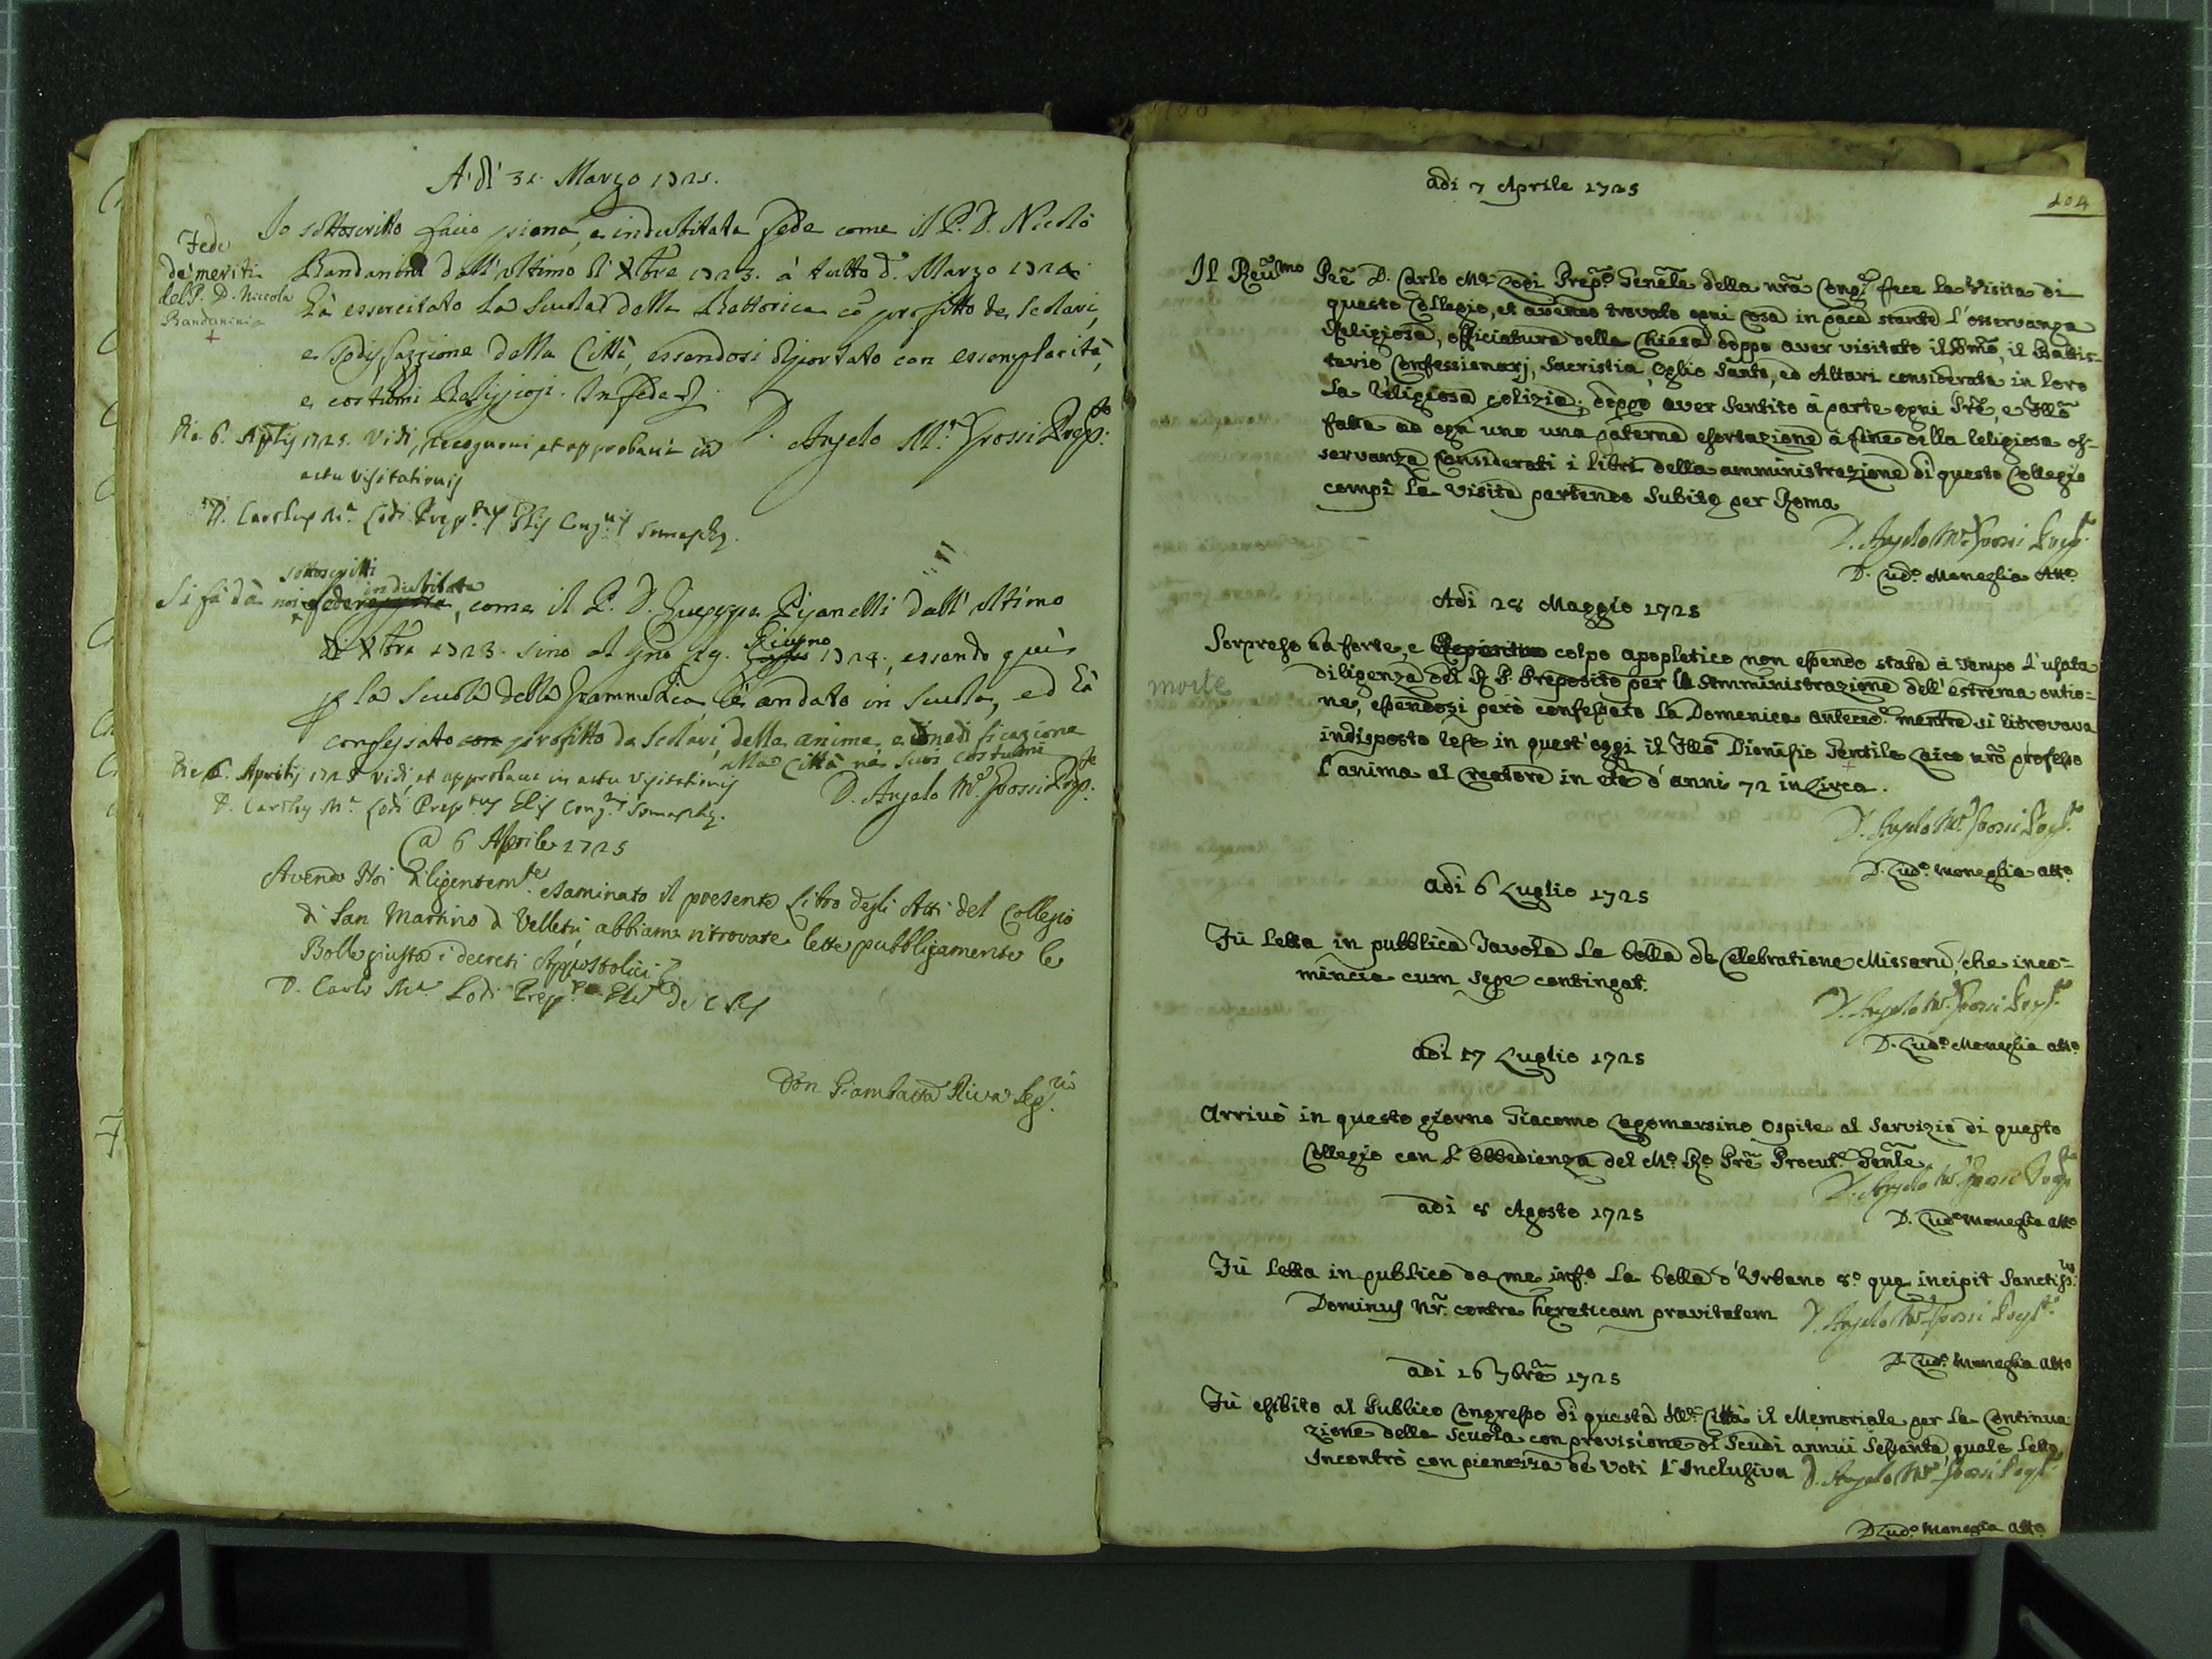 A' dì 31. Marzo 1725.
Io sottoscritto faccio piena, e indubitata fede come il P. D. Nicolò
Fede
de' meriti
del P. D. Niccola
Bandanini
Bandanini dall'ultimo di Xbre 1723. à tutto d. Marzo 1724
hà essercitato la Scuola della Rettorica cõ profitto de Scolari,
e sodisfazzione della Città, essendosi diportato con essemplarità,
e costumi Religiosi. In fede
D. Angelo M.ª Grossi Prep:to
Die 6. Aplis 1725. Vidi, recognovi, et approbavi in
actu visitationis
D. Carolus M.ª Lodi Prep.tus Glis Cong.nis Somaschę.
sottoscritti
indubitata
Si fà dà noi fede, come il P. D. Giuseppe Pisanelli dall'ultimo
Giugno
di Xbre 1723. sino al gno 1724., essendo quì
p la Scuola della Grammatica è andato in Scuola, ed hà
confessato con profitto de Scolari, delle anime, e edificazione
alla Città ne suoi costumi
D. Angelo M.ª Grossi Prep:to
Die 6. Aprilis 1725 vidi, et approbavi in actu visitationis
D. Carolus M.ª Lodi Prep.tus Glis Cong.nis Somaschę.
@ 6 Aprile 1725
Avendo Noi diligentem.te esaminato il presente Libro degli Atti del Collegio
di San Martino di Velletri, abbiamo ritrovate lette pubblicamente le
Bolle giusta i decreti Appostolici
D. Carlo M.ª Lodi Prep.to Gle de C R S
Don Giambatta Riva Seg.rio
104
adi 7 Aprile 1725
Il Reũmo Prẽ D. Carlo M.ª Lodi Prep.to Genẽle della nrã Cong.ne fece la Visita di
questo Collegio, et avendo trovato ogni cosa in pace stante l'osservanza
Religiosa, officiatura della Chiesa doppo aver visitato il SSmõ, il Battis-
terio Confessionarj, Sacristia, Oglio Santo, ed Altari considerata in loro
la Religiosa polizia; doppo aver sentito à parte ogni Prẽ, e Fllõ
fatta ad ogni uno una paterna esortazione à fine della Religiosa os-
servanza considerati i libri della amministrazione di questo Collegio
compì la visita partendo subito per Roma
D. Angelo M.ª Grossi Prep.to
D. Lud.º Moneglia Att.º
Adi 28 Maggio 1725
Sorpreso da forte, e Repentino colpo apopletico non essendo stata à tempo l'usata
morte
diligenza del R P Preposito per la Amministrazione dell'estrema ontio-
ne, essendosi però confessato la Domenica anteced.e mentre si ritrovava
indisposto rese in quest'oggi il Fllõ Dionisio Gentile Laico nrõ professo
l'anima al Creatore in età d'anni 72 in circa.
D. Angelo M.ª Grossi Prep.to
D. Lud.º Moneglia att.º
adi 6 Luglio 1725
Fù letta in pubblica Tavola la bolla de Celebratione Missarũ, che inco-
mincia cum sepe contingat.
D. Angelo M.ª Grossi Prep.to
D. Lud.º Moneglia att.º
adi 17 Luglio 1725
Arrivò in questo giorno Giacomo Lagomarsino Ospite al servizio di questo
Collegio con l'obbedienza del M.º R.º Prẽ Procut.e Genẽle
D. Angelo M.ª Grossi Prep.to
D. Lud.º Moneglia att.º
adi 8 Agosto 1725
Fù letta in publico da me inf.º la bolla d'Urbano 8.º que incipit Sanctiss.us
Dominus Nr̃. contra hęreticam pravitatem
D. Angelo M.ª Grossi Prep.to
D. Lud.º Moneglia att.º
adi 16 7brẽ 1725
Fù esibito al Publico Congresso di questa Ill.ma Città il Memoriale per la Continua
zione della Scuola con provisione di Scudi annui sessanta, quale letto
Incontrò con pienezza de Voti l'Inclusiva
D. Angelo M.ª Grossi Prep.to
D Lud.º Moneglia att.º